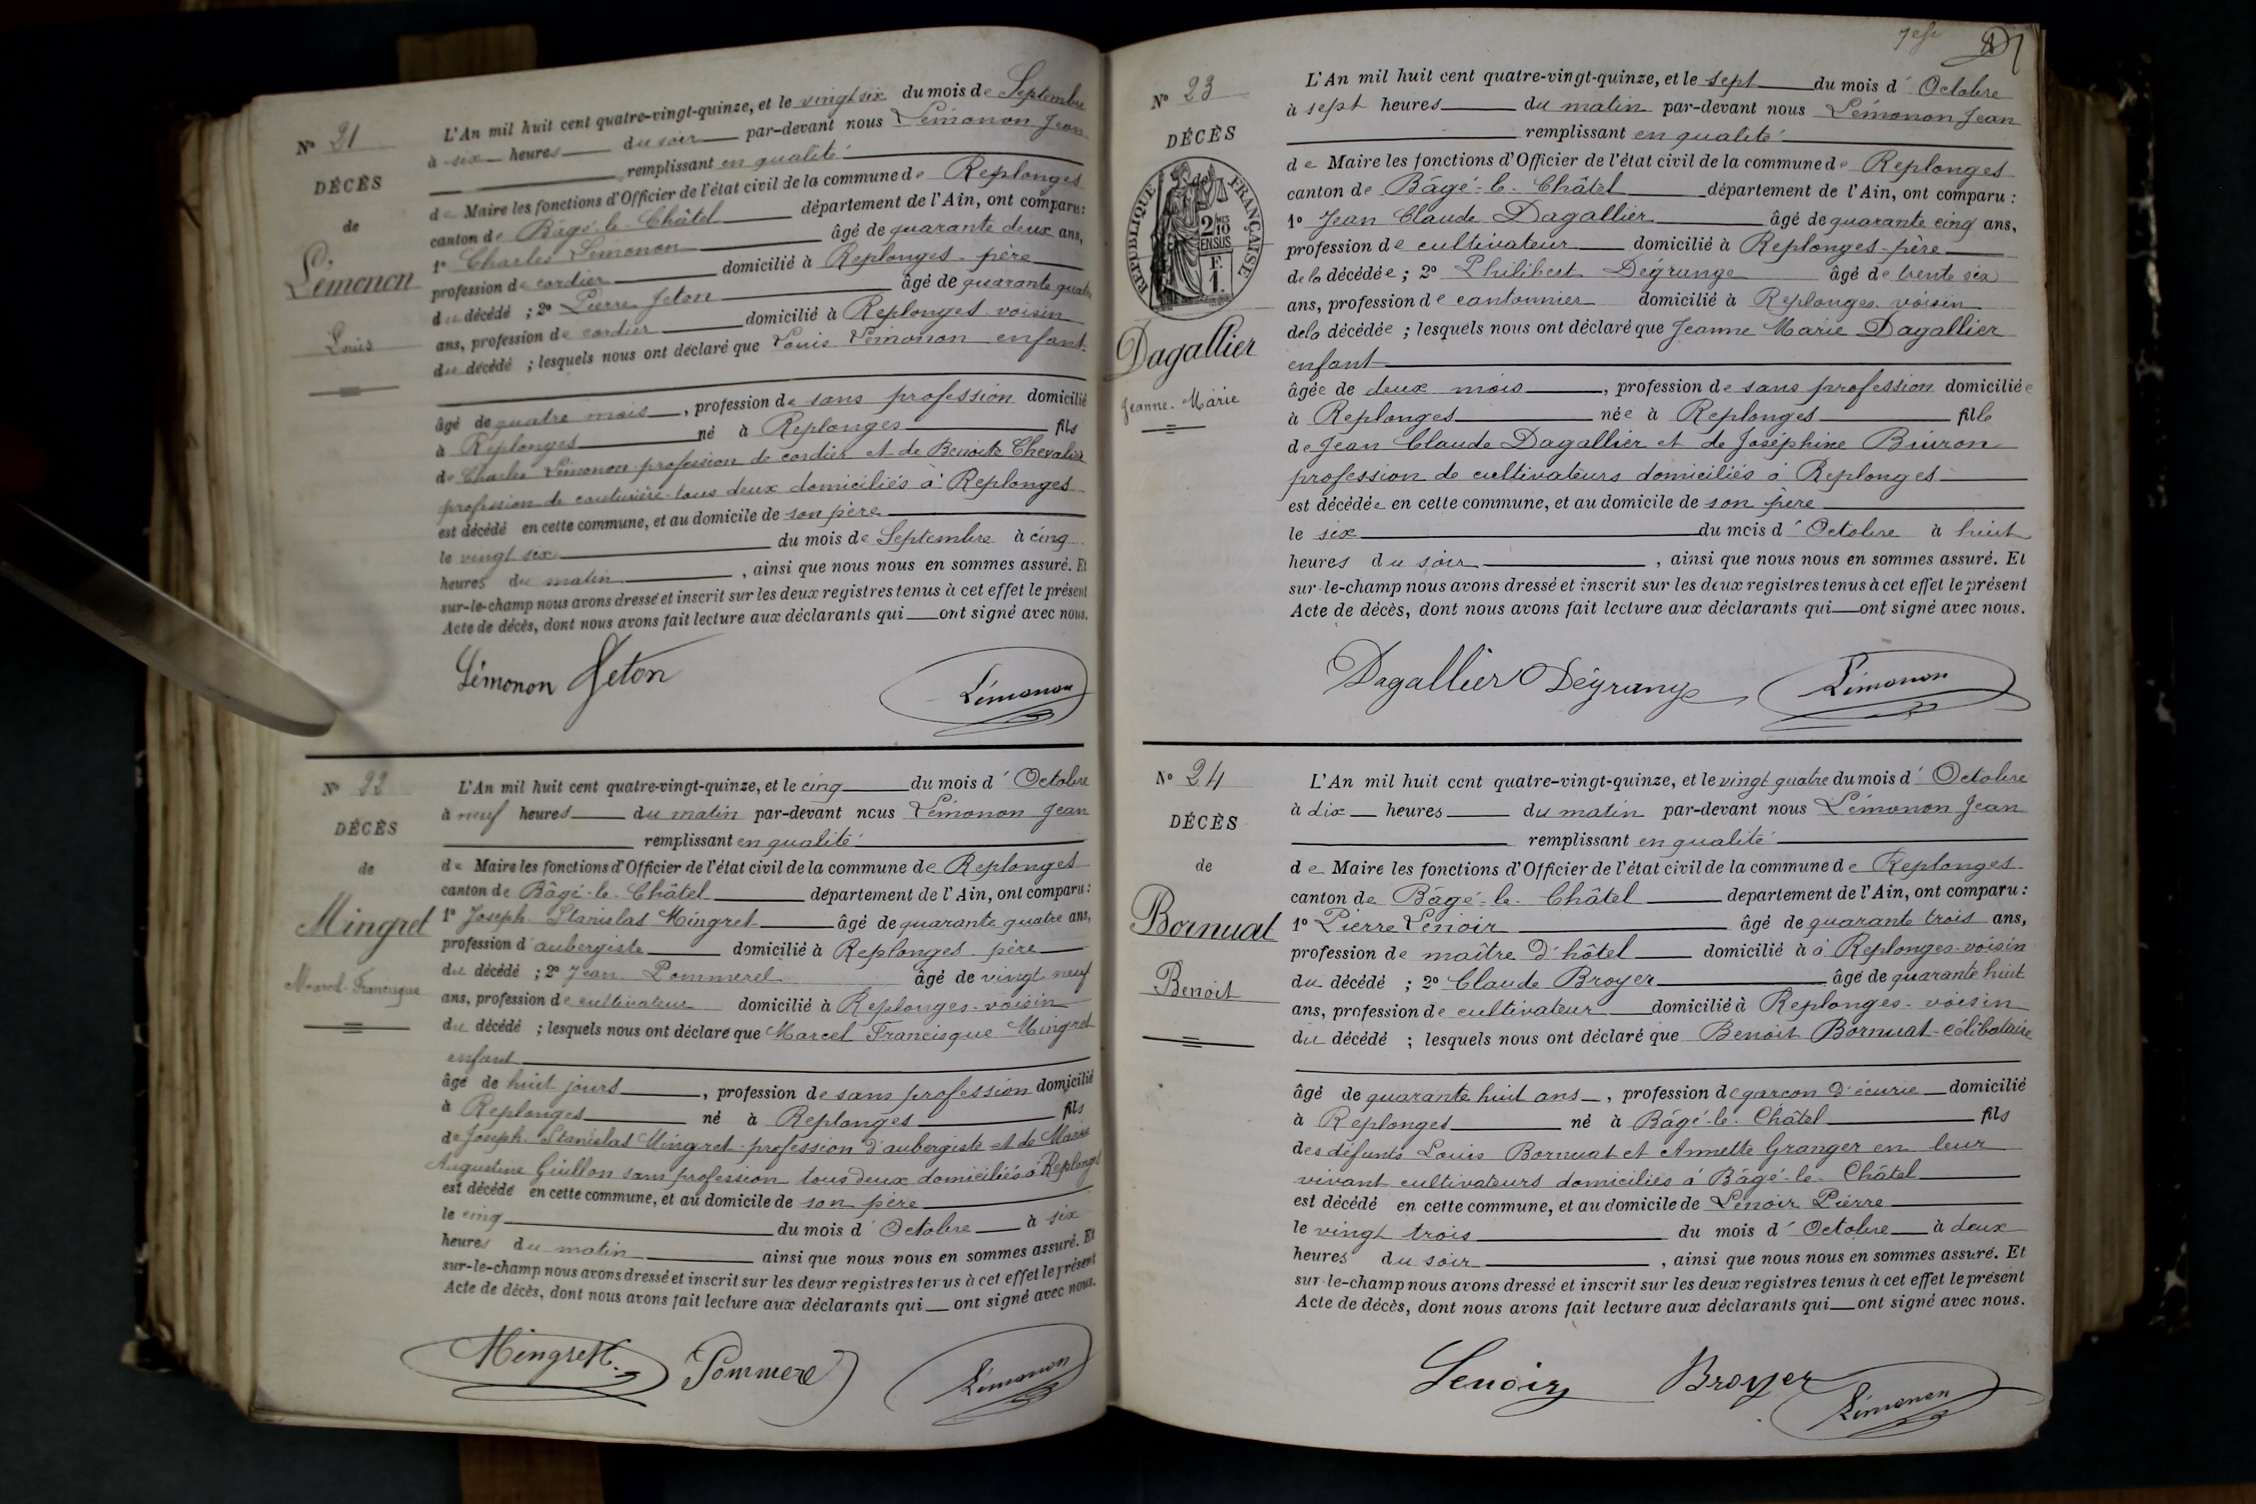 Nº 21
DÉCÈS
de
Lémonon
Louis
L'An mil huit cent quatre-vingt-quinze, et le vingt six du mois de Septembre
à six heures du soir par-devant nous Lémonon Jean
remplissant en qualité
de Maire les fonctions d'Officier de l'état civil de la commune de Replonges
canton de Bâgé-le-Châtel département de l'Ain, ont comparu:
1º Charles Lémonon âgé de quarante deux ans,
profession de cordier domicilié à Replonges - père
du décédé ; 2º Pierre Jeton âgé de quarante quatre
ans, profession de cordier domicilié à Replonges voisin
du décédé ; lesquels nous ont déclaré que Louis Lémonon enfant
âgé de quatre mois, profession de sans profession domicilié
à Replonges né à Replonges fils
de Charles Lémonon profession de cordier et de Benoite Chevalier
profession de couturière tous deux domiciliés à Replonges
est décédé en cette commune, et au domicile de son père
le vingt six du mois de Septembre à cinq
heures du matin, ainsi que nous nous en sommes assuré. Et
sur-le-champ nous avons dressé et inscrit sur les deux registres tenus à cet effet le présent
Acte de décès, dont nous avons fait lecture aux déclarants qui ont signé avec nous.
Lémonon Jeton Lémonon
Nº 22
DÉCÈS
de
Mingret
Marcel-Francisque
L'An mil huit cent quatre-vingt-quinze, et le cinq du mois d'Octobre
à neuf heures du matin par-devant nous Lémonon Jean
remplissant en qualité
de Maire les fonctions d'Officier de l'état civil de la commune de Replonges
canton de Bâgé-le-Châtel département de l'Ain, ont comparu:
1º Joseph Stanislas Mingret âgé de quarante quatre ans,
profession d'aubergiste domicilié à Replonges père
du décédé ; 2º Jean Pommerel âgé de vingt neuf
ans, profession de cultivateur domicilié à Replonges - voisin
du décédé ; lesquels nous ont déclaré que Marcel Francisque Mingret
enfant
âgé de huit jours, profession de sans profession domicilié
à Replonges né à Replonges fils
de Joseph Stanislas Mingret profession d'aubergiste et de Marie
Augustine Guillon sans profession tous deux domiciliés à Replonges
est décédé en cette commune, et au domicile de son père
le cinq du mois d'Octobre à six
heures du matin ainsi que nous nous en sommes assuré. Et
sur-le-champ nous avons dressé et inscrit sur les deux registres tenus à cet effet le présent
Acte de décès, dont nous avons fait lecture aux déclarants qui ont signé avec nous.
Mingret Pommerel Lémonon
Nº 23
DÉCÈS
RÉPUBLIQUE FRANÇAISE
2/10
EN SUS
Dagallier
Jeanne-Marie
L'An mil huit cent quatre-vingt-quinze, et le sept du mois d'Octobre
à sept heures du matin par-devant nous Lémonon Jean
remplissant en qualité
de Maire les fonctions d'Officier de l'état civil de la commune de Replonges
canton de Bâgé-le-Châtel département de l'Ain, ont comparu :
1º Jean Claude Dagallier âgé de quarante cinq ans,
profession de cultivateur domicilié à Replonges - père
de la décédée ; 2º Philibert Dégrange âgé de trente six
ans, profession de cantonnier domicilié à Replonges voisin
de la décédée ; lesquels nous ont déclaré que Jeanne Marie Dagallier
enfant
âgée de deux mois, profession de sans profession domiciliée
à Replonges née à Replonges fille
de Jean Claude Dagallier et de Joséphine Buiron
profession de cultivateurs domiciliés à Replonges
est décédée en cette commune, et au domicile de son père
le six du mois d'Octobre à huit
heures du soir, ainsi que nous nous en sommes assuré. Et
sur-le-champ nous avons dressé et inscrit sur les deux registres tenus à cet effet le présent
Acte de décès, dont nous avons fait lecture aux déclarants qui ont signé avec nous.
Dagallier Dégrange Lémonon
Nº 24
DÉCÈS
de
Bornuat
Benoît
L'An mil huit cent quatre-vingt-quinze, et le vingt quatre du mois d'Octobre
à dix heures du matin par-devant nous Lémonon Jean
remplissant en qualité
de Maire les fonctions d'Officier de l'état civil de la commune de Replonges
canton de Bâgé-le-Châtel département de l'Ain, ont comparu :
1º Pierre Lenoir âgé de quarante trois ans,
profession de maître d'hôtel domicilié à à Replonges - voisin
du décédé ; 2º Claude Broyer âgé de quarante huit
ans, profession de cultivateur domicilié à Replonges - voisin
du décédé ; lesquels nous ont déclaré que Benoit Bornuat - célibataire
âgé de quarante huit ans, profession de garçon d'écurie domicilié
à Replonges né à Bâgé-le-Châtel fils
des défunts Louis Bornuat et Annette Granger en leur
vivant cultivateurs domiciliés à Bâgé-le-Châtel
est décédé en cette commune, et au domicile de Lenoir Pierre
le vingt trois du mois d'Octobre à deux
heures du soir, ainsi que nous nous en sommes assuré. Et
sur-le-champ nous avons dressé et inscrit sur les deux registres tenus à cet effet le présent
Acte de décès, dont nous avons fait lecture aux déclarants qui ont signé avec nous.
Lenoir Broyer Lémonon